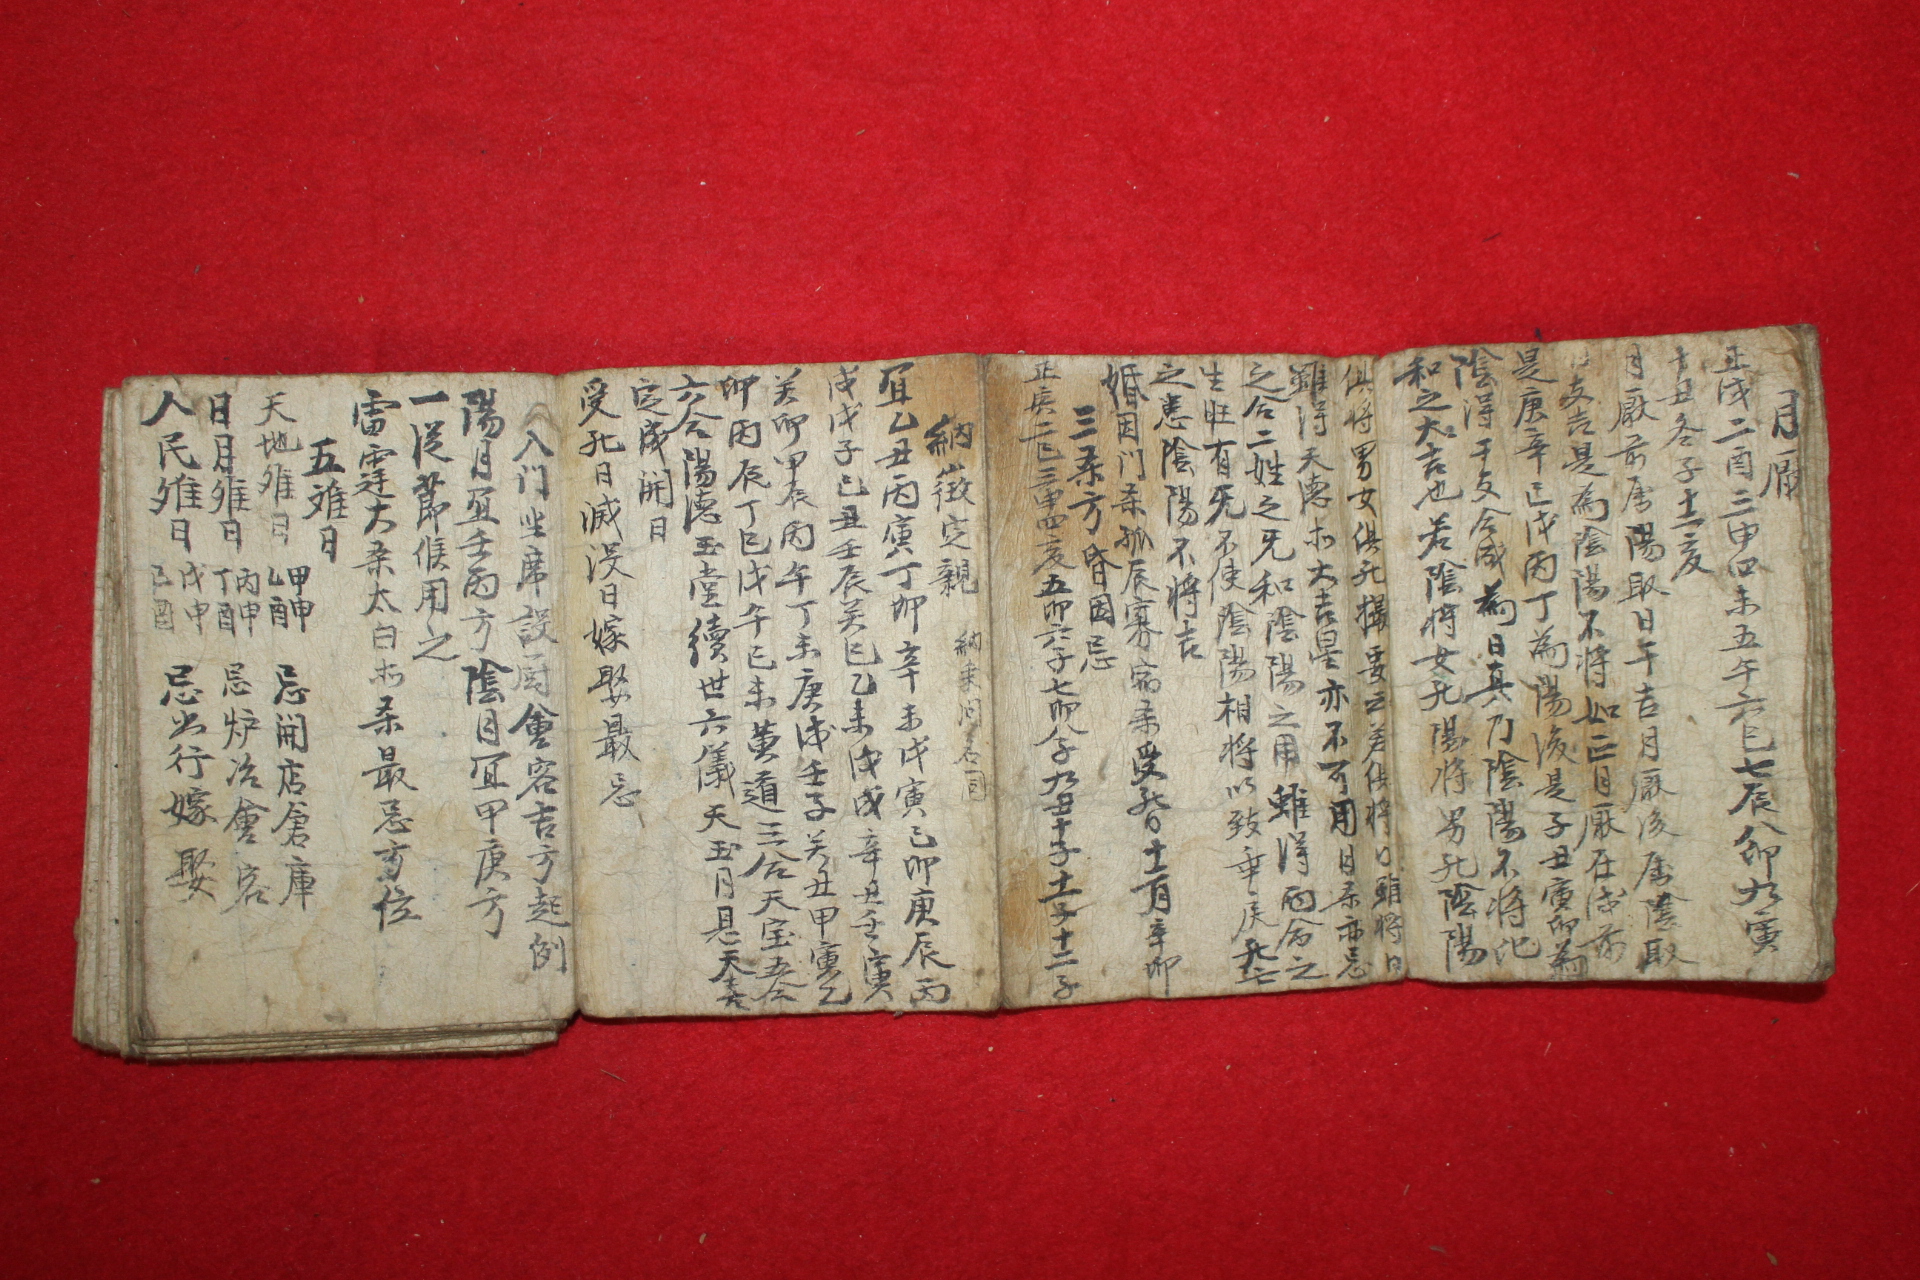 月厭
正戌二酉三申四未五午六巳七辰八卯九寅
十丑冬子十二亥
月厭前屬陽取日午吉月厭後屬陰取
支吉是為陰陽不將如正月厭在戌前
是庚辛己戊丙丁為陽後是子丑寅卯為
陰得干支合成為日真乃陰陽不將
和之大吉也若陰將女死陽將男死陰陽
俱將男女俱死
雖得天德大吉星亦不可用日殺亦忌
之合二姓之 和陰陽之用雖得
生旺有 不使陰陽相將以致
之患陰陽不將吉
婚因门殺孤辰寡宿殺受死日十二月辛卯
三殺方 昏因忌
正 二巳三申四亥五卯六子七卯八子九丑十子十一子十二子
納徵定親
宜乙丑丙寅丁卯辛未戊寅己卯庚辰丙
戌戊子己丑壬辰癸巳乙未戊戌辛丑壬寅
癸卯甲辰丙午丁未庚戌壬子癸丑甲寅乙
卯丙辰丁巳戊午己未黄道三合天宝五合
六合陽德玉堂續世六儀天玉月恩天喜
定成開日
受死日滅没日嫁娶最忌
入门坐席設厨會客吉方起例
陽月宜壬丙方陰月宜甲庚方
一從節候用之
雷霆大殺太白 殺最忌方位
五雉日
天地雉日 甲申 乙酉 忌開店倉庫
日月雉日 丙申 丁酉 忌炉冶會客
人民雉日 戊申 己酉 忌出行嫁娶